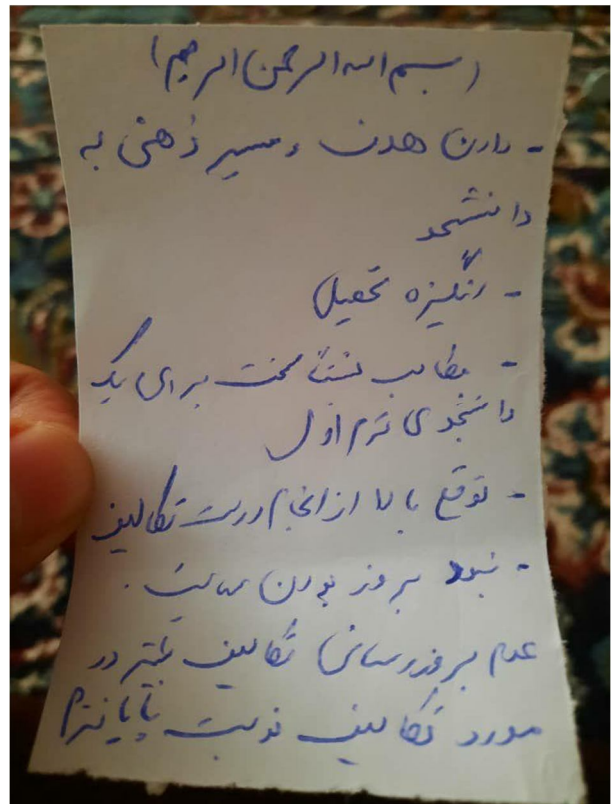 (بسم الله الرحمن الرحیم)
- دادن هدف و مسیر ذهنی به
دانشجو
- انگیزه تحصیل
- مطالب نسبتاً سخت برای یک
دانشجوی ترم اول
- توقع بالا از انجام درست تکالیف
- نبود بروز بودن سایت.
عدم بروزرسانی تکالیف بیشتر در
مورد تکالیف نوبت پایانترم